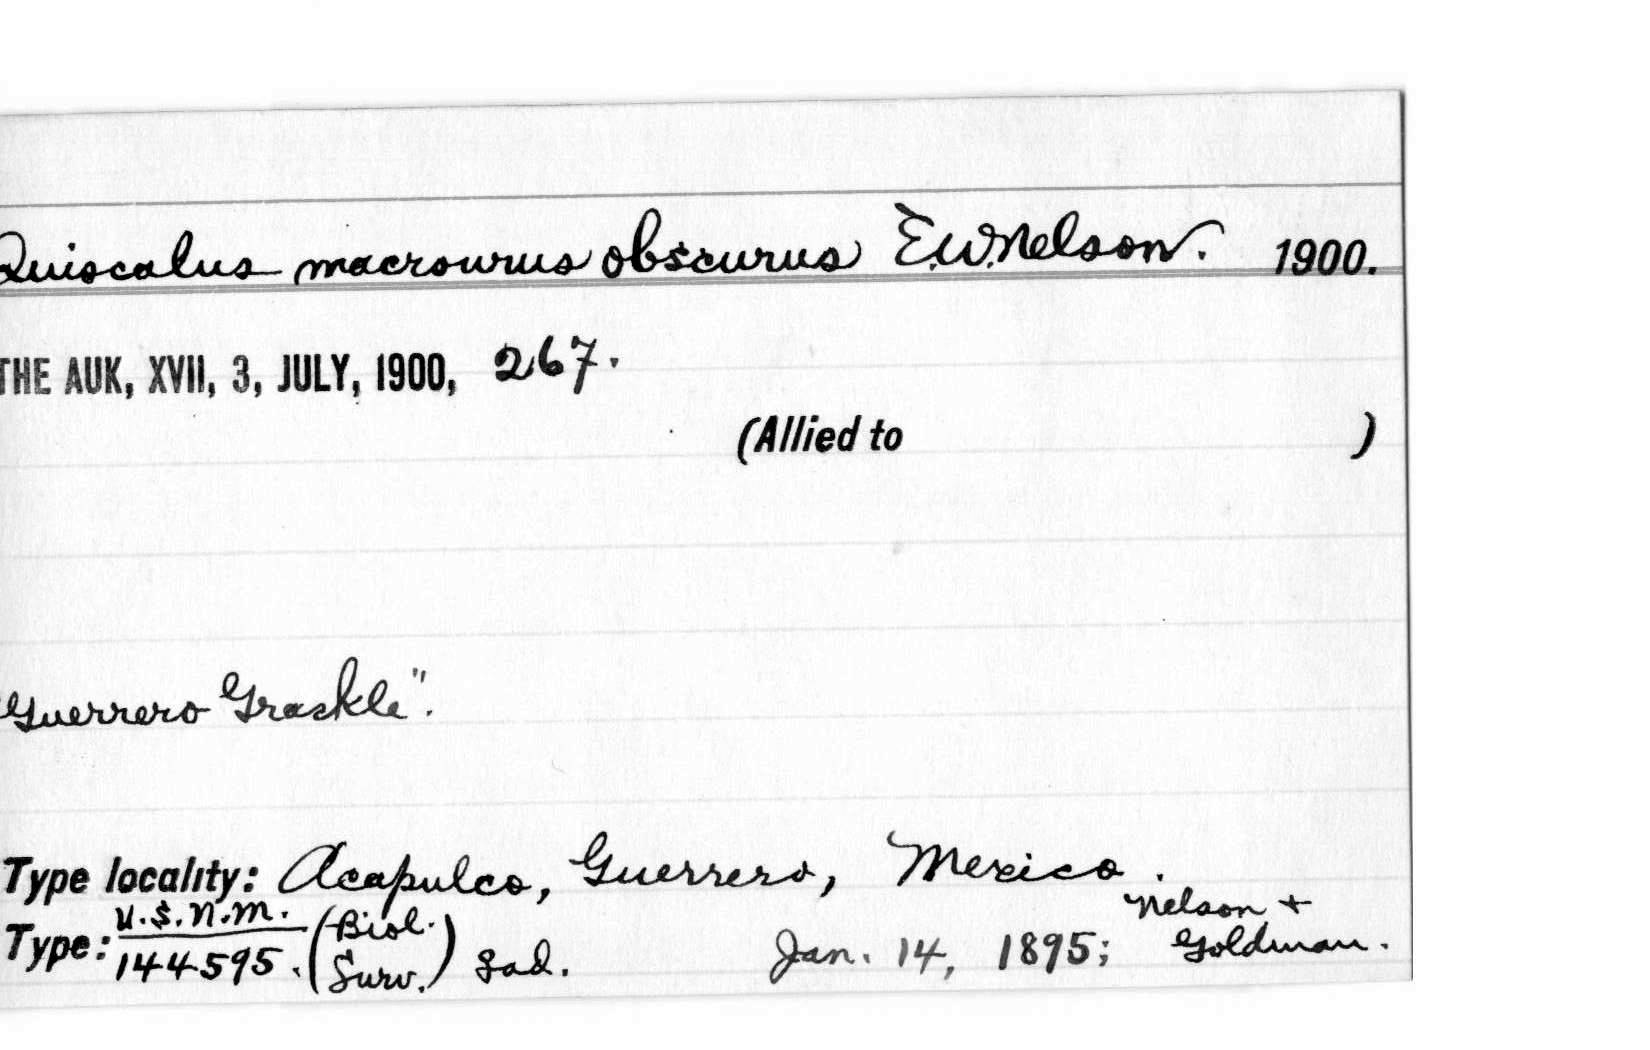 Quiscalus macrourus obscurus E.W.Nelson. 1900.
THE AUK, XVII, 3, JULY, 1900, 267.
(Allied to )
"Guerrero Grackle".
Type locality: Acapulco, Guerrero, Mexico.
Type: U.S.N.M. 144595. (Biol. Surv.) ♂ad. Jan. 14, 1895; Nelson + Goldman.